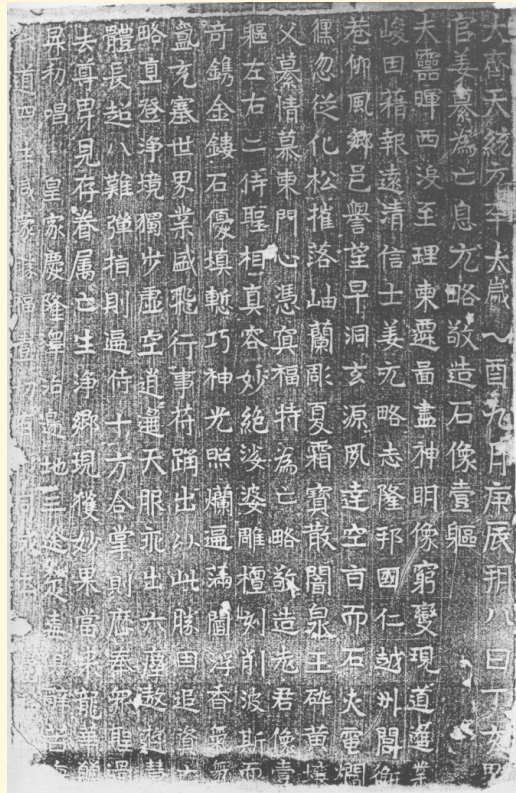 大齊天統元年太歲乙酉九月庚辰朔八日丁亥
官姜纂為亡息元略敬造石像壹軀
夫靈暉西沒至理東遷啚盡神明像窮變現道進業
峻因藉報遠清信士姜元略志隆邦國仁越州閭
巷仰風鄉邑譽望早洞玄源夙達空旨而石火電
儵忽從化松摧落岫蘭彫夏霜寶散闇泉玉碎黃壤
父纂情慕東門心憑冥福特為亡略敬造老君像壹
軀左右二侍聖相真容妙絕娑婆雕檀刻削波斯而
奇鐫金鏤石優填慙巧神光照爛遍滿閻浮香氣
氳充塞世界業盛飛行事苻踊出以此勝因追資亡
略直登淨境獨步虛空逍遙天服亦出六塵遨遊慧
體長超八難彈指則遍侍十方合掌則歷奉眾聖
去尊卑見存眷屬亡生淨鄉現獲妙果當來龍華
昇初唱 皇家慶隆澤洎邊地三途楚盡
道四生咸蒙勝福